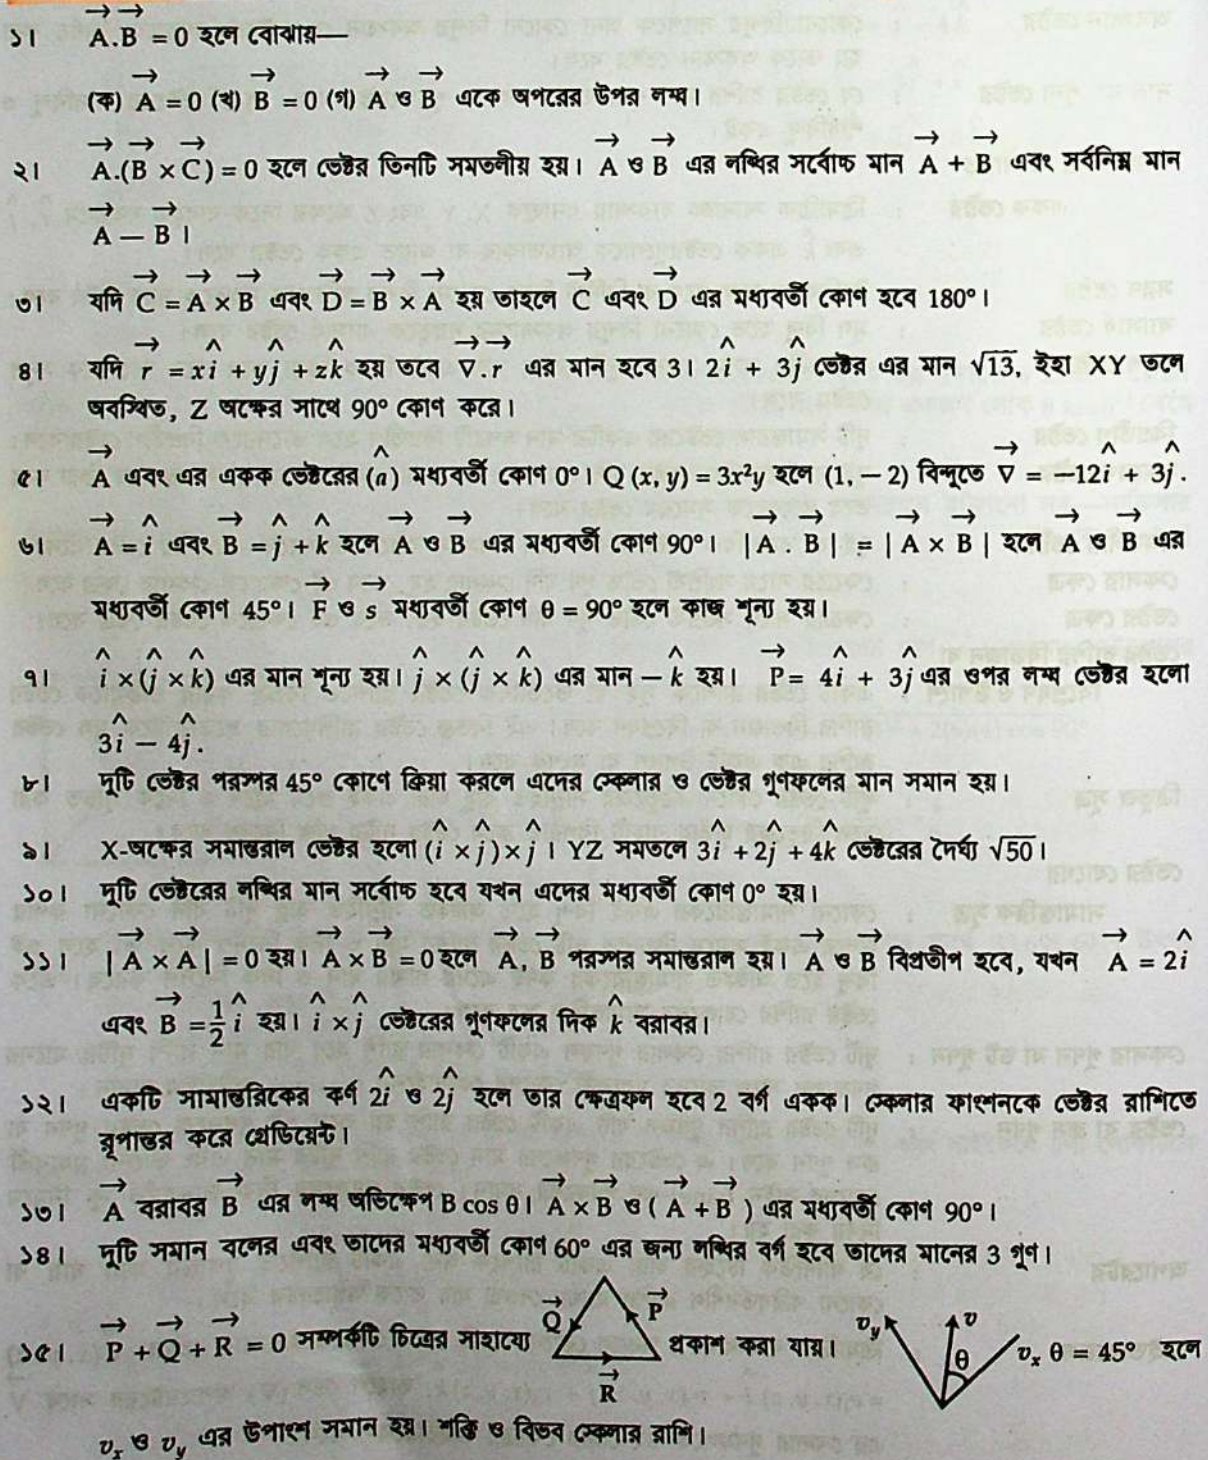 ১। $\overrightarrow{A}.\overrightarrow{B} = 0$ হলে বোঝায়—
(ক) $\overrightarrow{A} = 0$ (খ) $\overrightarrow{B} = 0$ (গ) $\overrightarrow{A}$ ও $\overrightarrow{B}$ একে অপরের উপর লম্ব।
২। $\overrightarrow{A}.(\overrightarrow{B} \times \overrightarrow{C}) = 0$ হলে ভেক্টর তিনটি সমতলীয় হয়। $\overrightarrow{A}$ ও $\overrightarrow{B}$ এর লব্ধির সর্বোচ্চ মান $\overrightarrow{A} + \overrightarrow{B}$ এবং সর্বনিম্ন মান
$\overrightarrow{A} - \overrightarrow{B}$।
৩। যদি $\overrightarrow{C} = \overrightarrow{A} \times \overrightarrow{B}$ এবং $\overrightarrow{D} = \overrightarrow{B} \times \overrightarrow{A}$ হয় তাহলে $\overrightarrow{C}$ এবং $\overrightarrow{D}$ এর মধ্যবর্তী কোণ হবে 180°।
৪। যদি $\overrightarrow{r} = x\hat{i} + y\hat{j} + z\hat{k}$ হয় তবে $\overrightarrow{\nabla}.\overrightarrow{r}$ এর মান হবে 3। $2\hat{i} + 3\hat{j}$ ভেক্টর এর মান $\sqrt{13}$, ইহা XY তলে
অবস্থিত, Z অক্ষের সাথে 90° কোণ করে।
৫। $\overrightarrow{A}$ এবং এর একক ভেক্টরের $(\hat{a})$ মধ্যবর্তী কোণ 0°। $Q(x, y) = 3x^2y$ হলে (1, – 2) বিন্দুতে $\overrightarrow{\nabla} = -12\hat{i} + 3\hat{j}$.
৬। $\overrightarrow{A} = \hat{i}$ এবং $\overrightarrow{B} = \hat{j} + \hat{k}$ হলে $\overrightarrow{A}$ ও $\overrightarrow{B}$ এর মধ্যবর্তী কোণ 90°। $|\overrightarrow{A} . \overrightarrow{B}| = |\overrightarrow{A} \times \overrightarrow{B}|$ হলে $\overrightarrow{A}$ ও $\overrightarrow{B}$ এর
মধ্যবর্তী কোণ 45°। $\overrightarrow{F}$ ও $\overrightarrow{s}$ মধ্যবর্তী কোণ θ = 90° হলে কাজ শূন্য হয়।
৭। $\hat{i} \times (\hat{j} \times \hat{k})$ এর মান শূন্য হয়। $\hat{j} \times (\hat{j} \times \hat{k})$ এর মান $-\hat{k}$ হয়। $\overrightarrow{P} = 4\hat{i} + 3\hat{j}$ এর ওপর লম্ব ভেক্টর হলো
$3\hat{i} - 4\hat{j}$.
৮। দুটি ভেক্টর পরস্পর 45° কোণে ক্রিয়া করলে এদের স্কেলার ও ভেক্টর গুণফলের মান সমান হয়।
৯। X-অক্ষের সমান্তরাল ভেক্টর হলো $(\hat{i} \times \hat{j}) \times \hat{j}$। YZ সমতলে $3\hat{i} + 2\hat{j} + 4\hat{k}$ ভেক্টরের দৈর্ঘ্য $\sqrt{50}$।
১০। দুটি ভেক্টরের লব্ধির মান সর্বোচ্চ হবে যখন এদের মধ্যবর্তী কোণ 0° হয়।
১১। $|\overrightarrow{A} \times \overrightarrow{A}| = 0$ হয়। $\overrightarrow{A} \times \overrightarrow{B} = 0$ হলে $\overrightarrow{A}, \overrightarrow{B}$ পরস্পর সমান্তরাল হয়। $\overrightarrow{A}$ ও $\overrightarrow{B}$ বিপ্রতীপ হবে, যখন $\overrightarrow{A} = 2\hat{i}$
এবং $\overrightarrow{B} = \frac{1}{2}\hat{i}$ হয়। $\hat{i} \times \hat{j}$ ভেক্টরের গুণফলের দিক $\hat{k}$ বরাবর।
১২। একটি সামান্তরিকের কর্ণ $2\hat{i}$ ও $2\hat{j}$ হলে তার ক্ষেত্রফল হবে 2 বর্গ একক। স্কেলার ফাংশনকে ভেক্টর রাশিতে
রূপান্তর করে গ্রেডিয়েন্ট।
১৩। $\overrightarrow{A}$ বরাবর $\overrightarrow{B}$ এর লম্ব অভিক্ষেপ B cos θ। $\overrightarrow{A} \times \overrightarrow{B}$ ও $(\overrightarrow{A} + \overrightarrow{B})$ এর মধ্যবর্তী কোণ 90°।
১৪। দুটি সমান বলের এবং তাদের মধ্যবর্তী কোণ 60° এর জন্য লব্ধির বর্গ হবে তাদের মানের 3 গুণ।
১৫। $\overrightarrow{P} + \overrightarrow{Q} + \overrightarrow{R} = 0$ সম্পর্কটি চিত্রের সাহায্যে $\overrightarrow{Q}$ $\overrightarrow{P}$ $\overrightarrow{R}$ প্রকাশ করা যায়। $v_y$ $v$ θ $v_x$ θ = 45° হলে
$v_x$ ও $v_y$ এর উপাংশ সমান হয়। শক্তি ও বিভব স্কেলার রাশি।